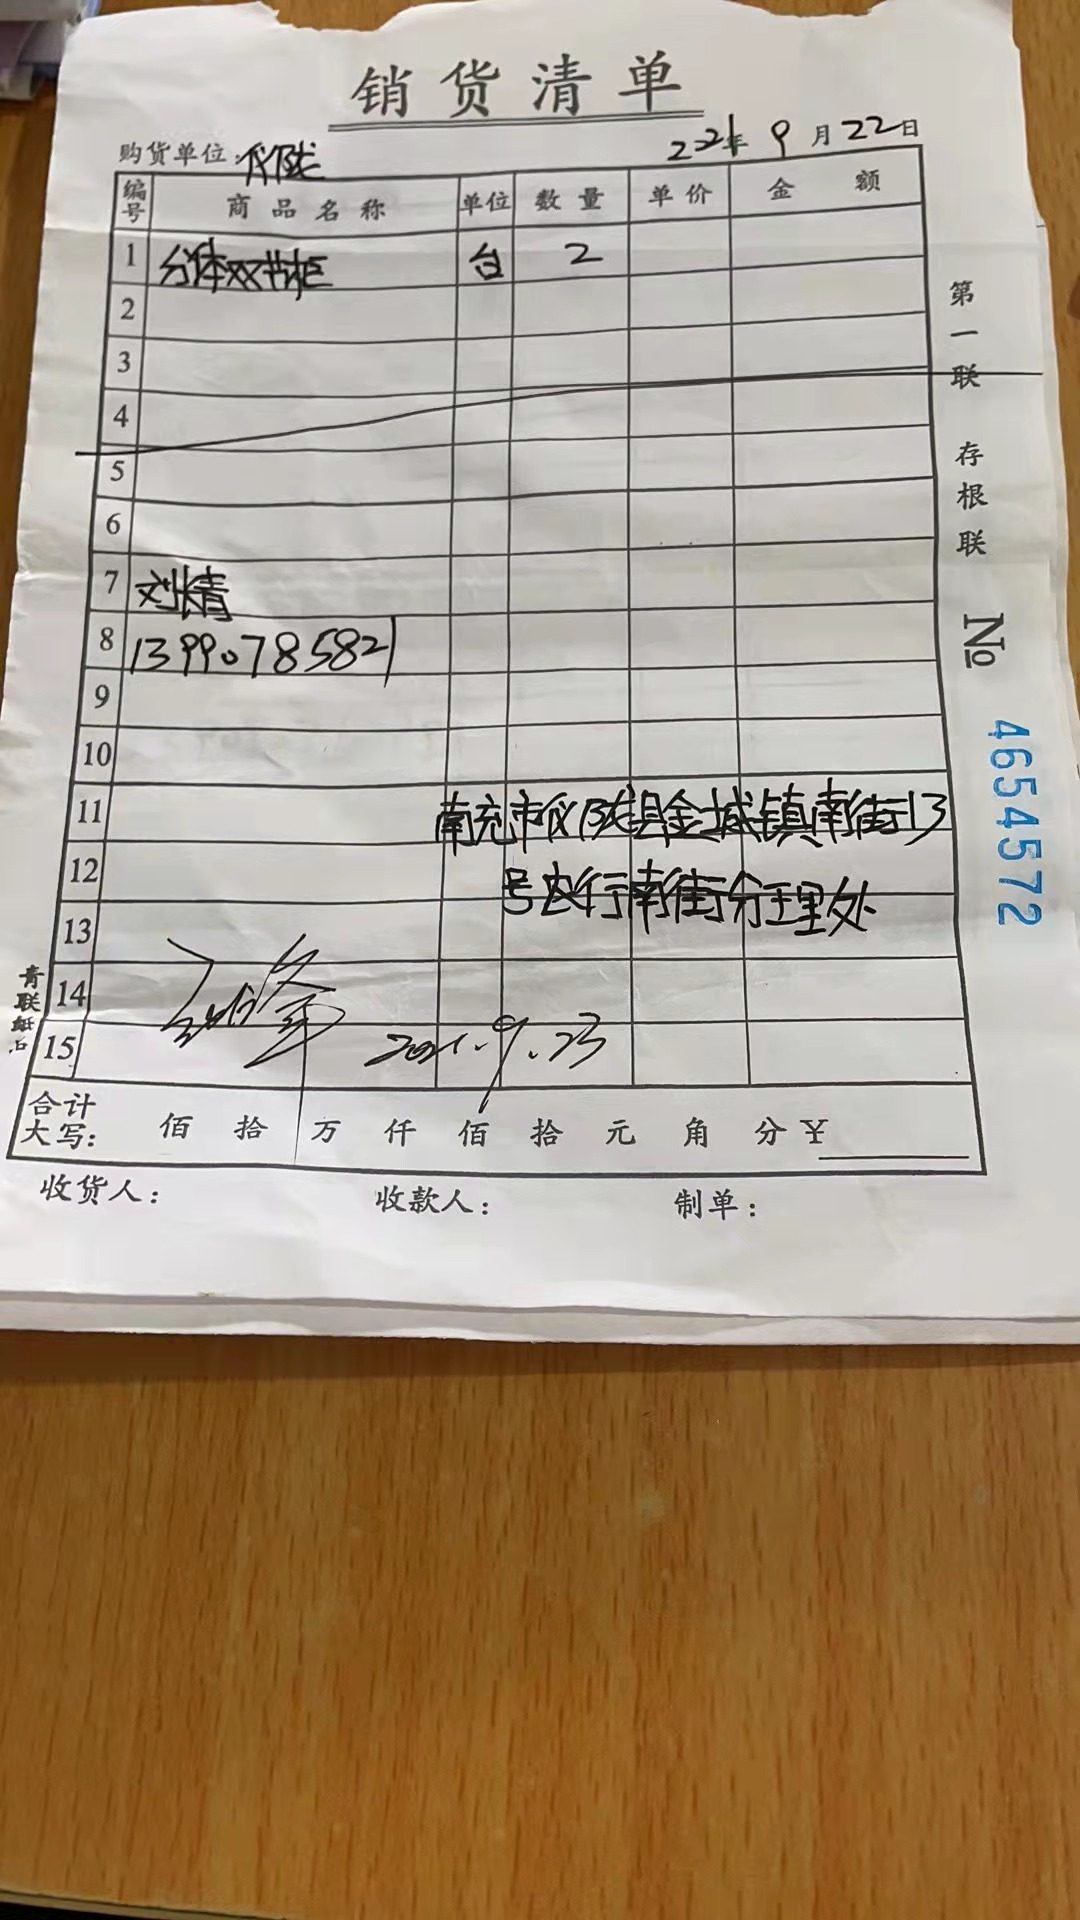 销货清单
购货单位:仪陇 2021年9月22日
编号 商品名称 单位 数量 单价 金额
1 分体双节柜 台 2
2
3
4
5
6
7 刘靖
8 13990785821
9
10
11 南充市仪陇县金城镇南街13
12 号农行南街分理处
13
14
15 2021.9.23
合计
大写: 佰 拾 万 仟 佰 拾 元 角 分 ¥
收货人: 收款人: 制单:
第一联 存根联 № 4654572
青联纸品